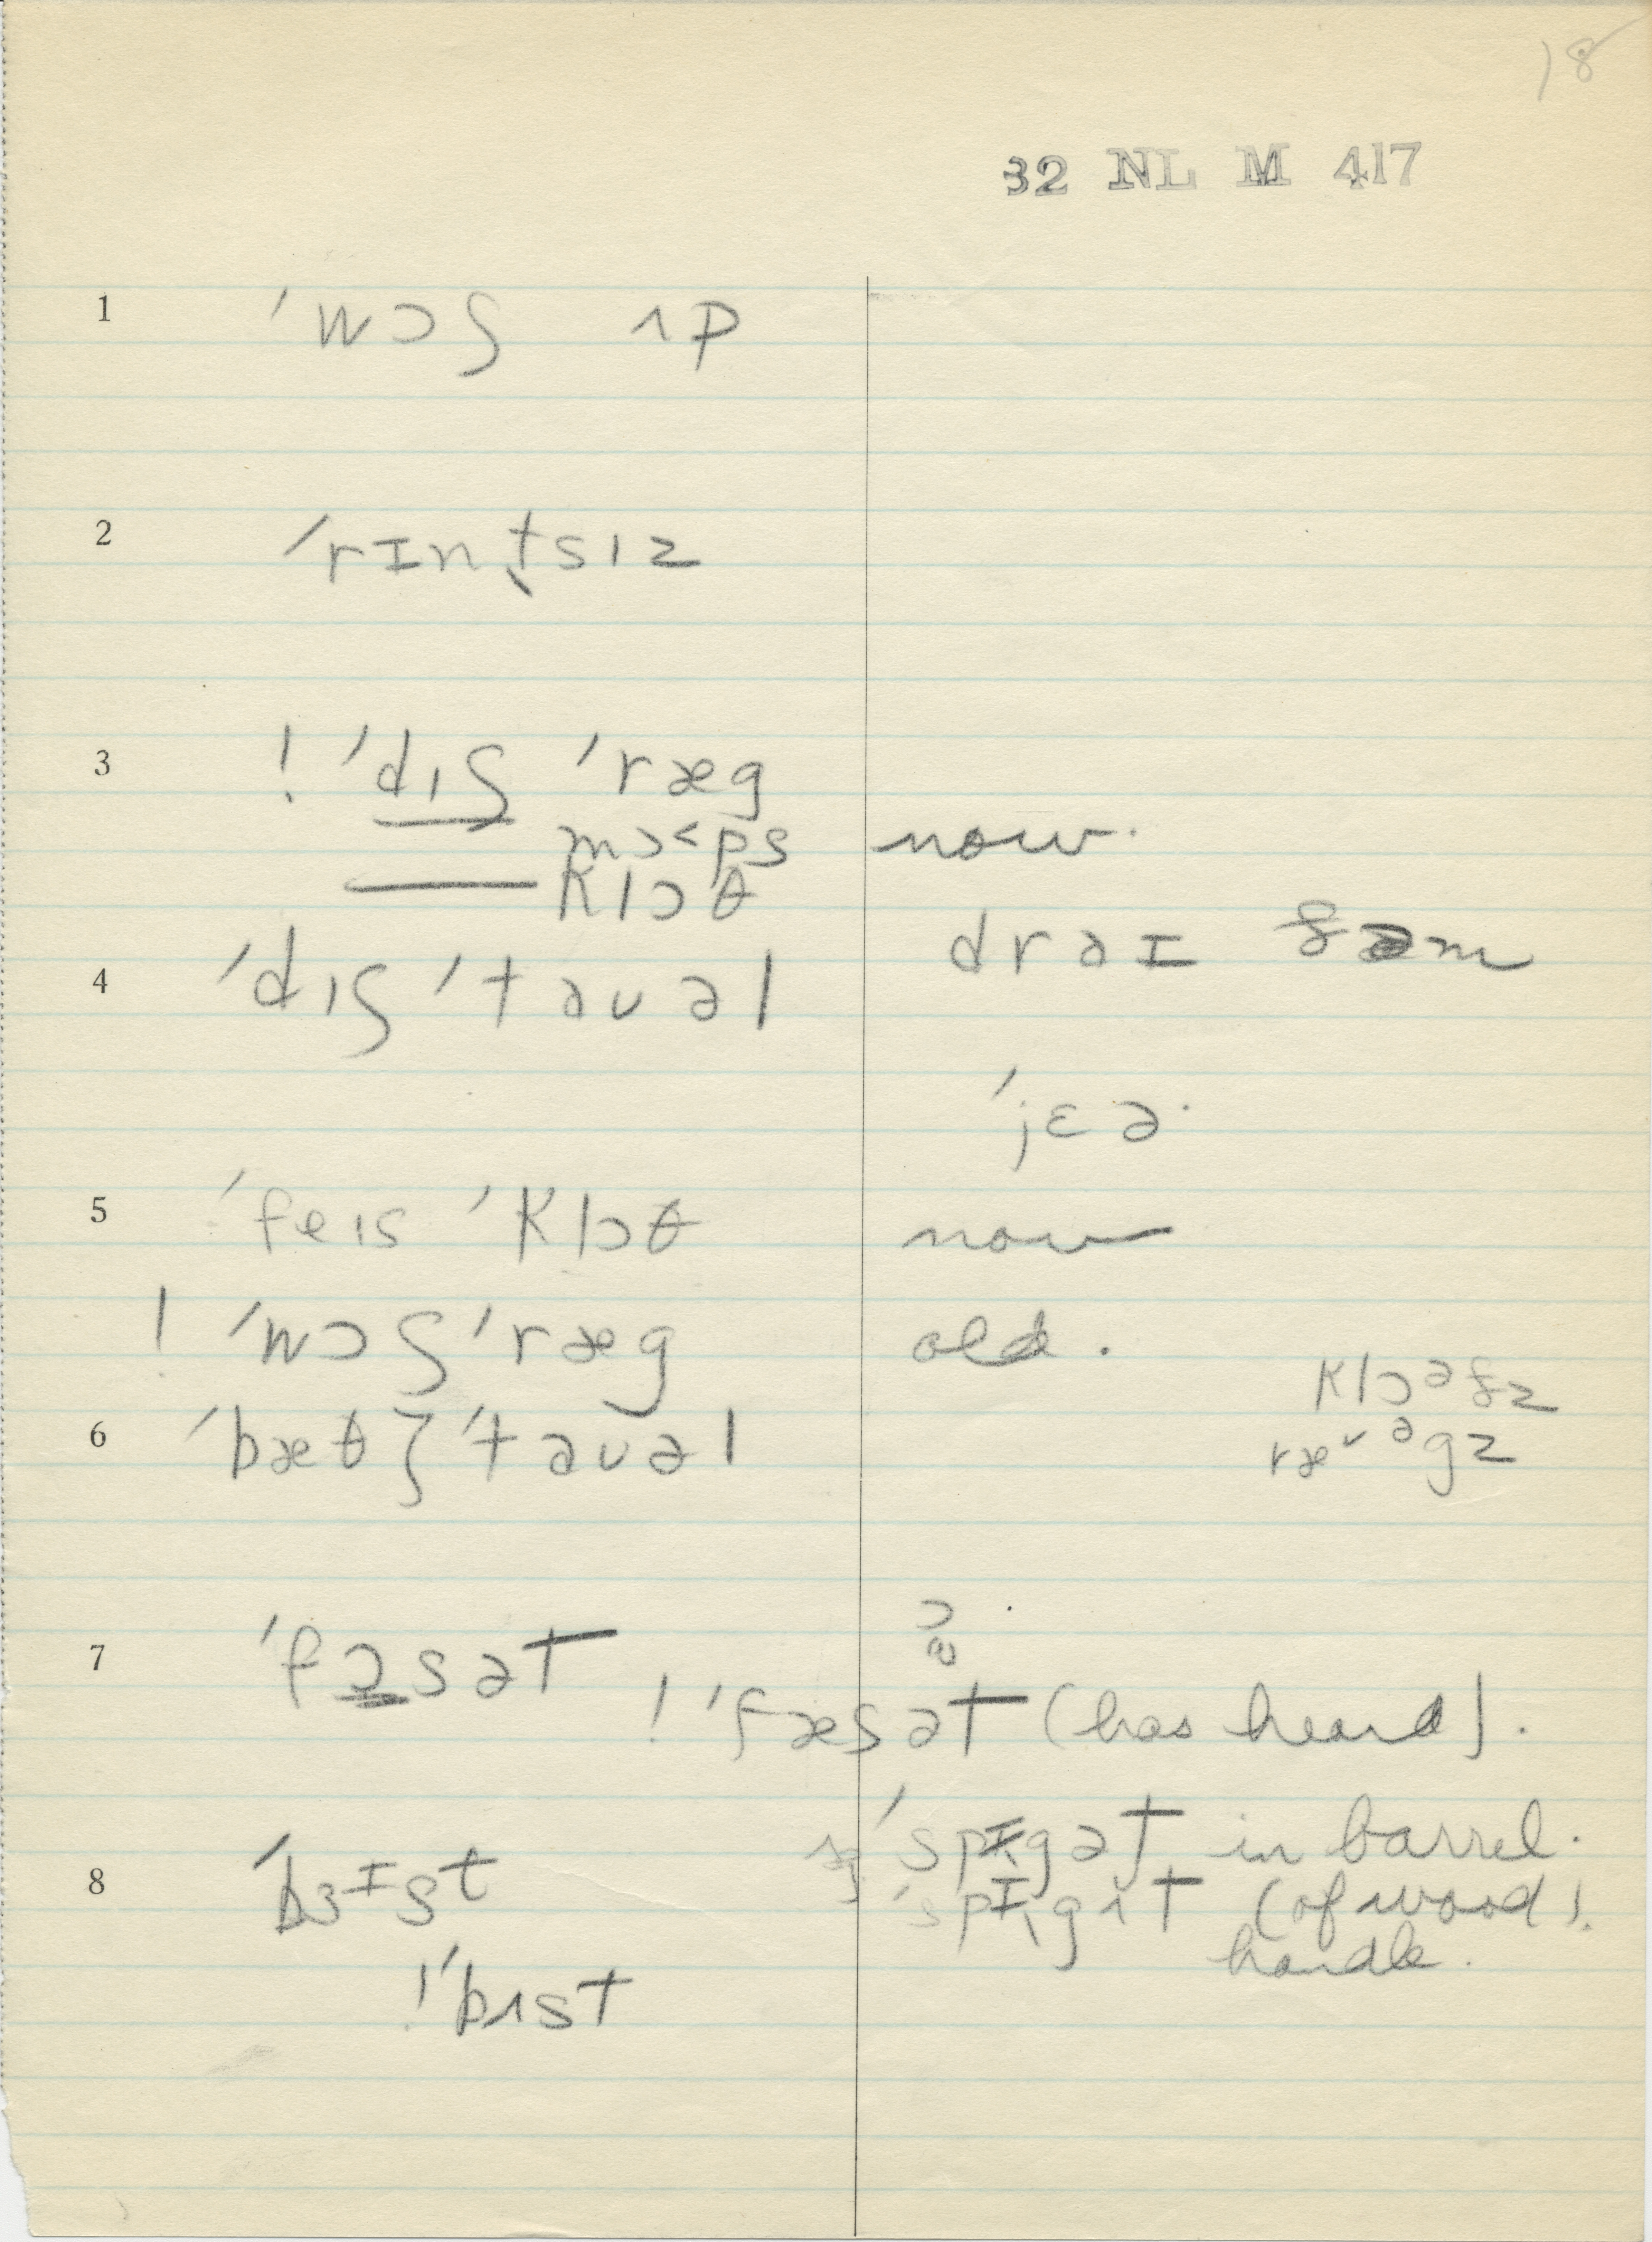 18
32 NL M 417
1 ˈwɔʃ ʌp
2 ˈrɪntsɪz
3 ! ˈdɪʃ ˈræg
mɔ˂ps now.
klɔθ
4 ˈdɪʃ ˈtaʊəl draɪ ðəm
ˈjɛə.
5 ˈfeɪs ˈklɔθ now
! ˈwɔʃ ˈræg old.
klɔᵊðz
6 ˈbæθ ˈtaʊəl
ræ˅ᵊgz
7 ˈfɔsət
! ˈfæsət (has heard).
ˈspɪgət in barrel.
8 ˈbɜɪst ˈspɪgɪt (of wood).
handle.
! ˈbɪst